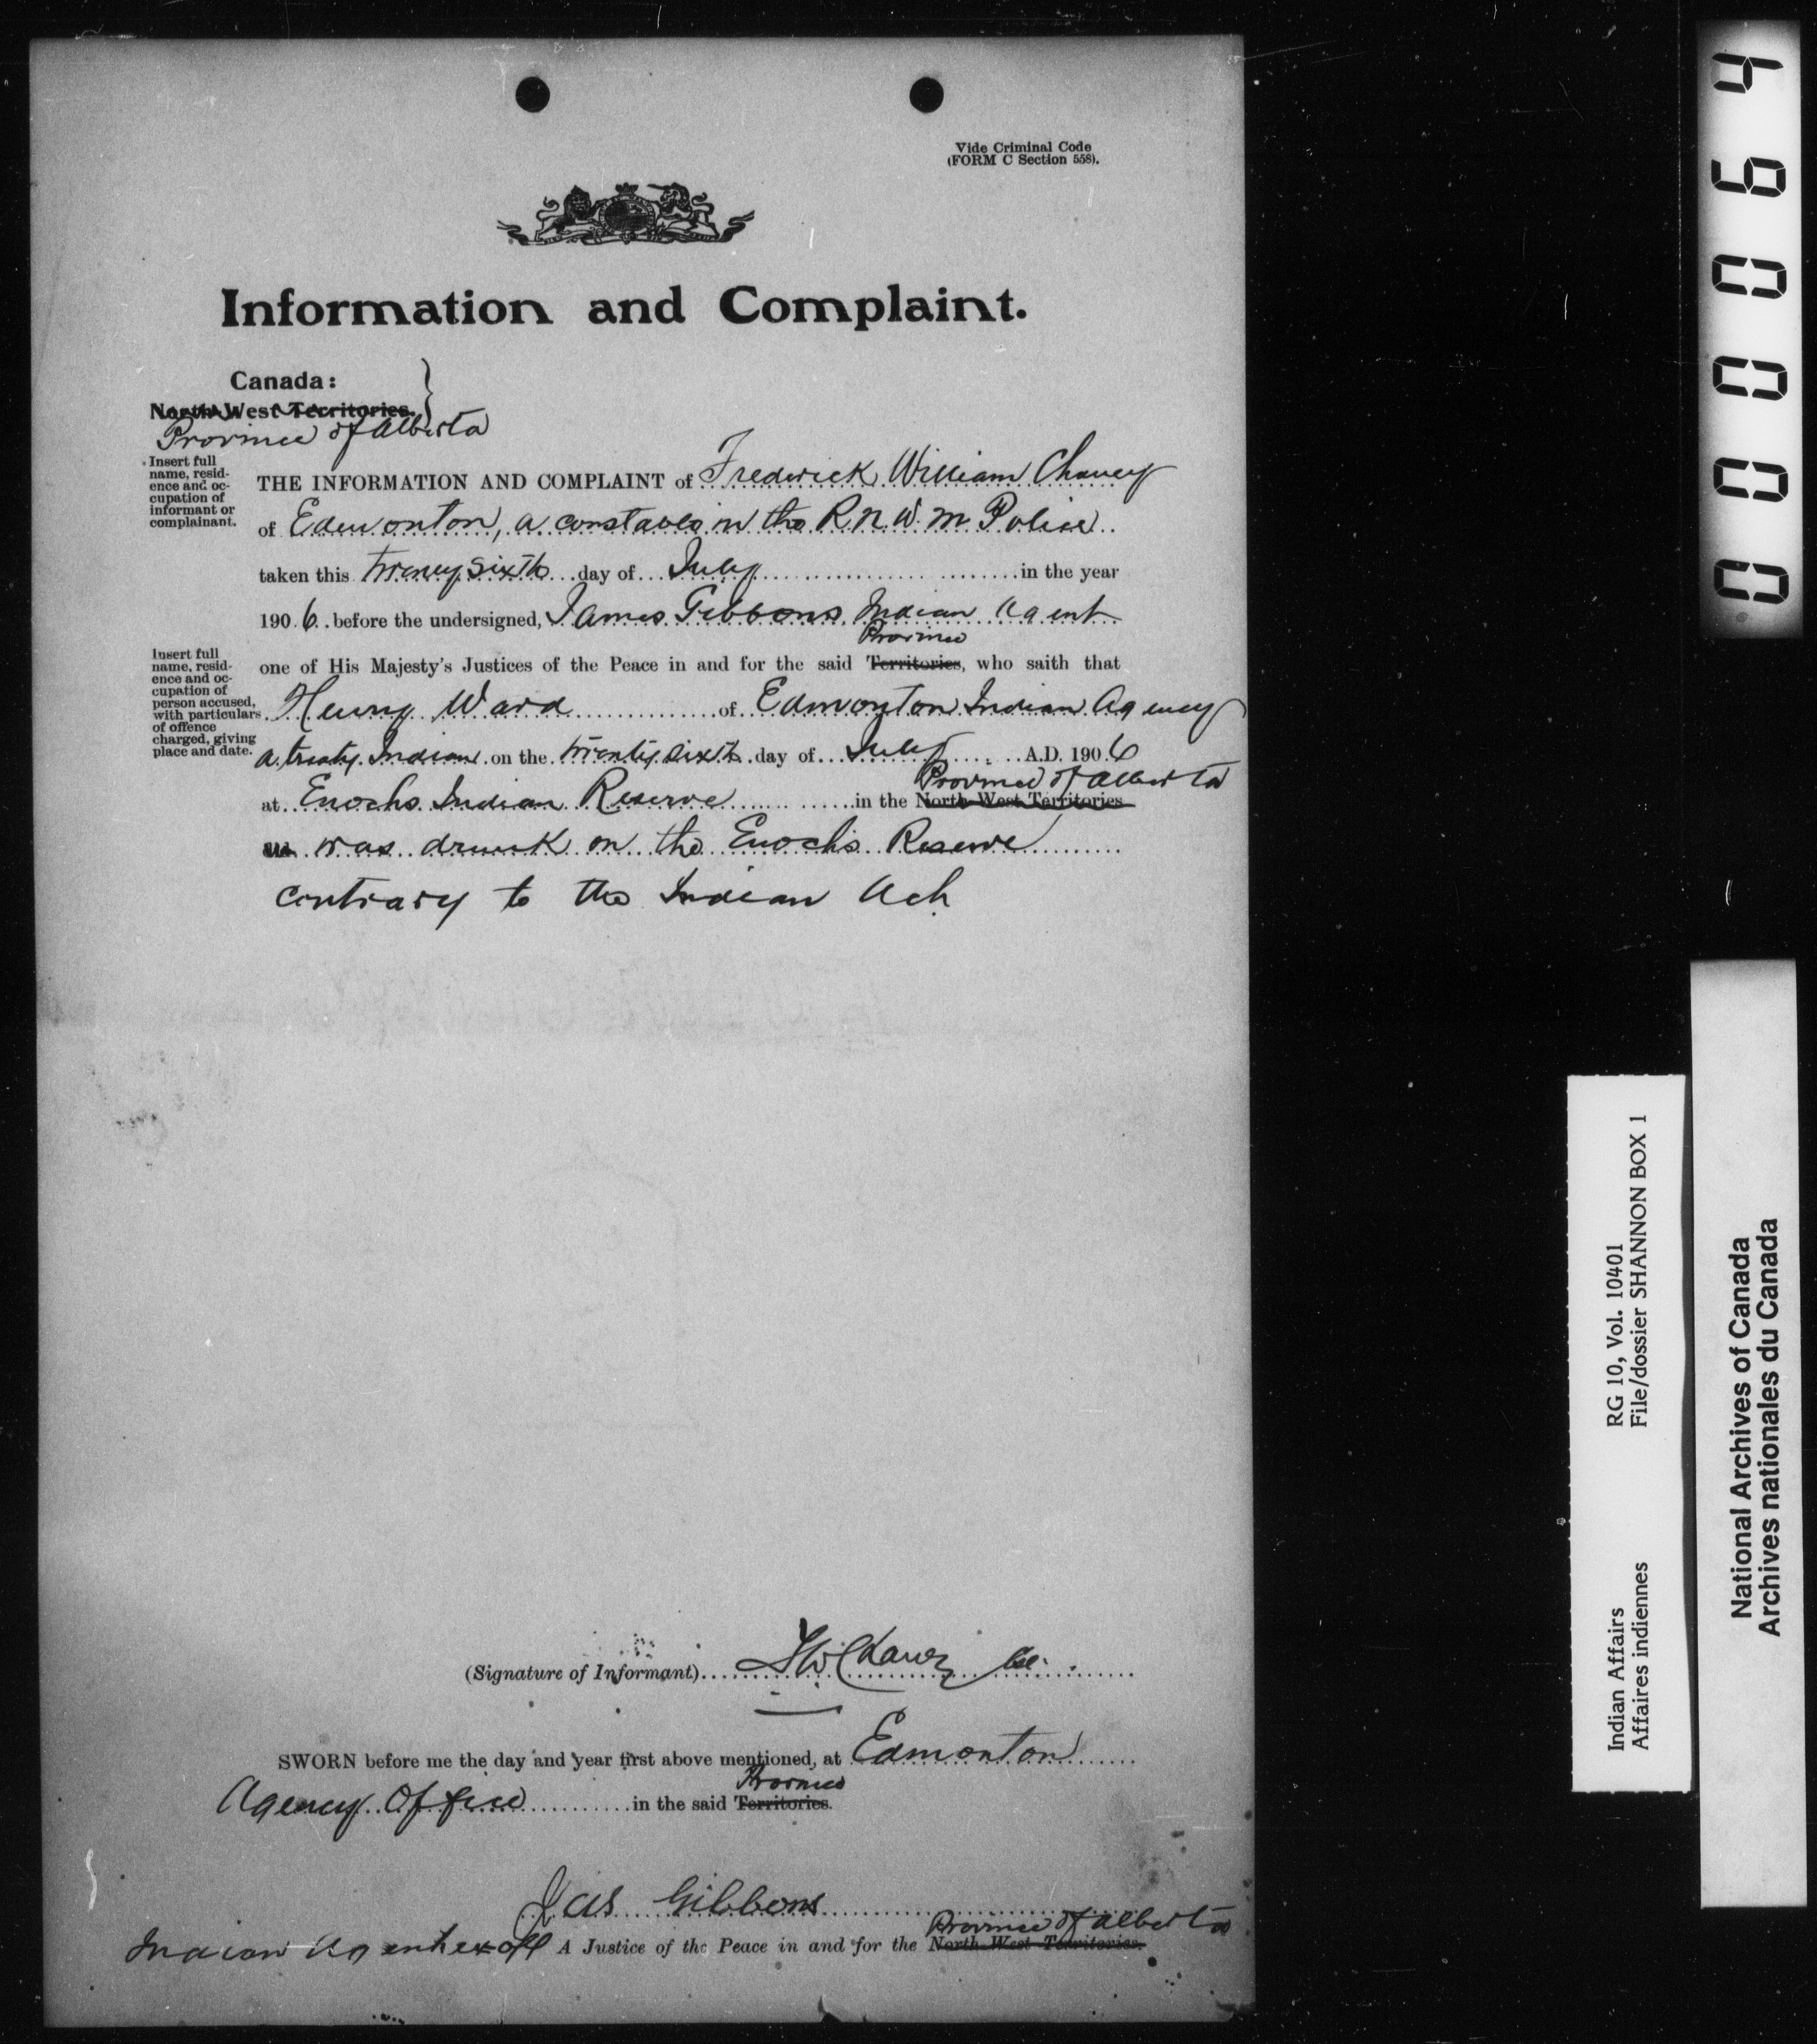 Vide Criminal Code
(FORM C Section 558).
Information and Complaint.
Canada:
North-West Territories.
Province of Alberta
Insert full
name, resid-
ence and oc-
cupation of
informant or
complainant.
THE INFORMATION AND COMPLAINT of Frederick William
of Edmonton, a constable in the R. N. W. M Police
taken this twenty sixth day of July in the year
1906 before the undersigned, James Gibbons Indian Agent
Province
one of His Majesty's Justices of the Peace in and for the said Territories, who saith that
Insert full
name, resid-
ence and oc-
cupation of
person accused,
with particulars
of offence
charged, giving
place and date.
Henry Ward of Edmonton Indian Agency
a treaty Indian on the twenty sixth day of July A.D. 1906
Province of Alberta
at Enochs Indian Reserve in the North-West Territories
was drunk on the Enochs Reserve
contrary to the Indian Act
(Signature of Informant)
SWORN before me the day and year first above mentioned, at Edmonton
Province
Agency Office in the said Territories.
Jas Gibbons
Province of Alberta
Indian Agent ex off A Justice of the Peace in and for the North-West Territories.
000064
Indian Affairs RG 10, Vol. 10401
Affaires indiennes File/dossier SHANNON BOX 1
National Archives of Canada
Archives nationales du Canada